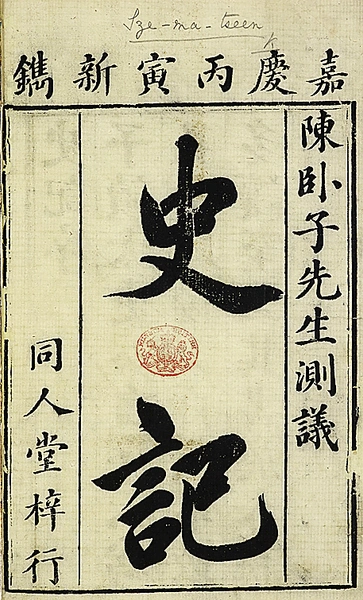 Sze-ma-tseen
嘉慶丙寅新鐫
陳卧子先生測議
史記
同人堂梓行